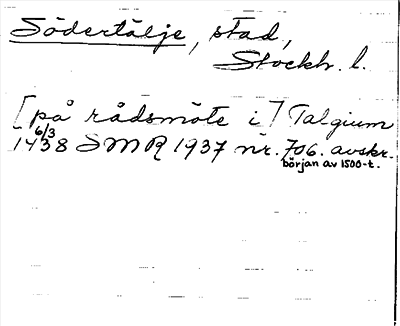 Södertälje, stad,
Stockh. l.
[på rådsmöte i] Talgium
6/3
1438 SMR 1937 nr. 706. avskr.
början av 1500-t.